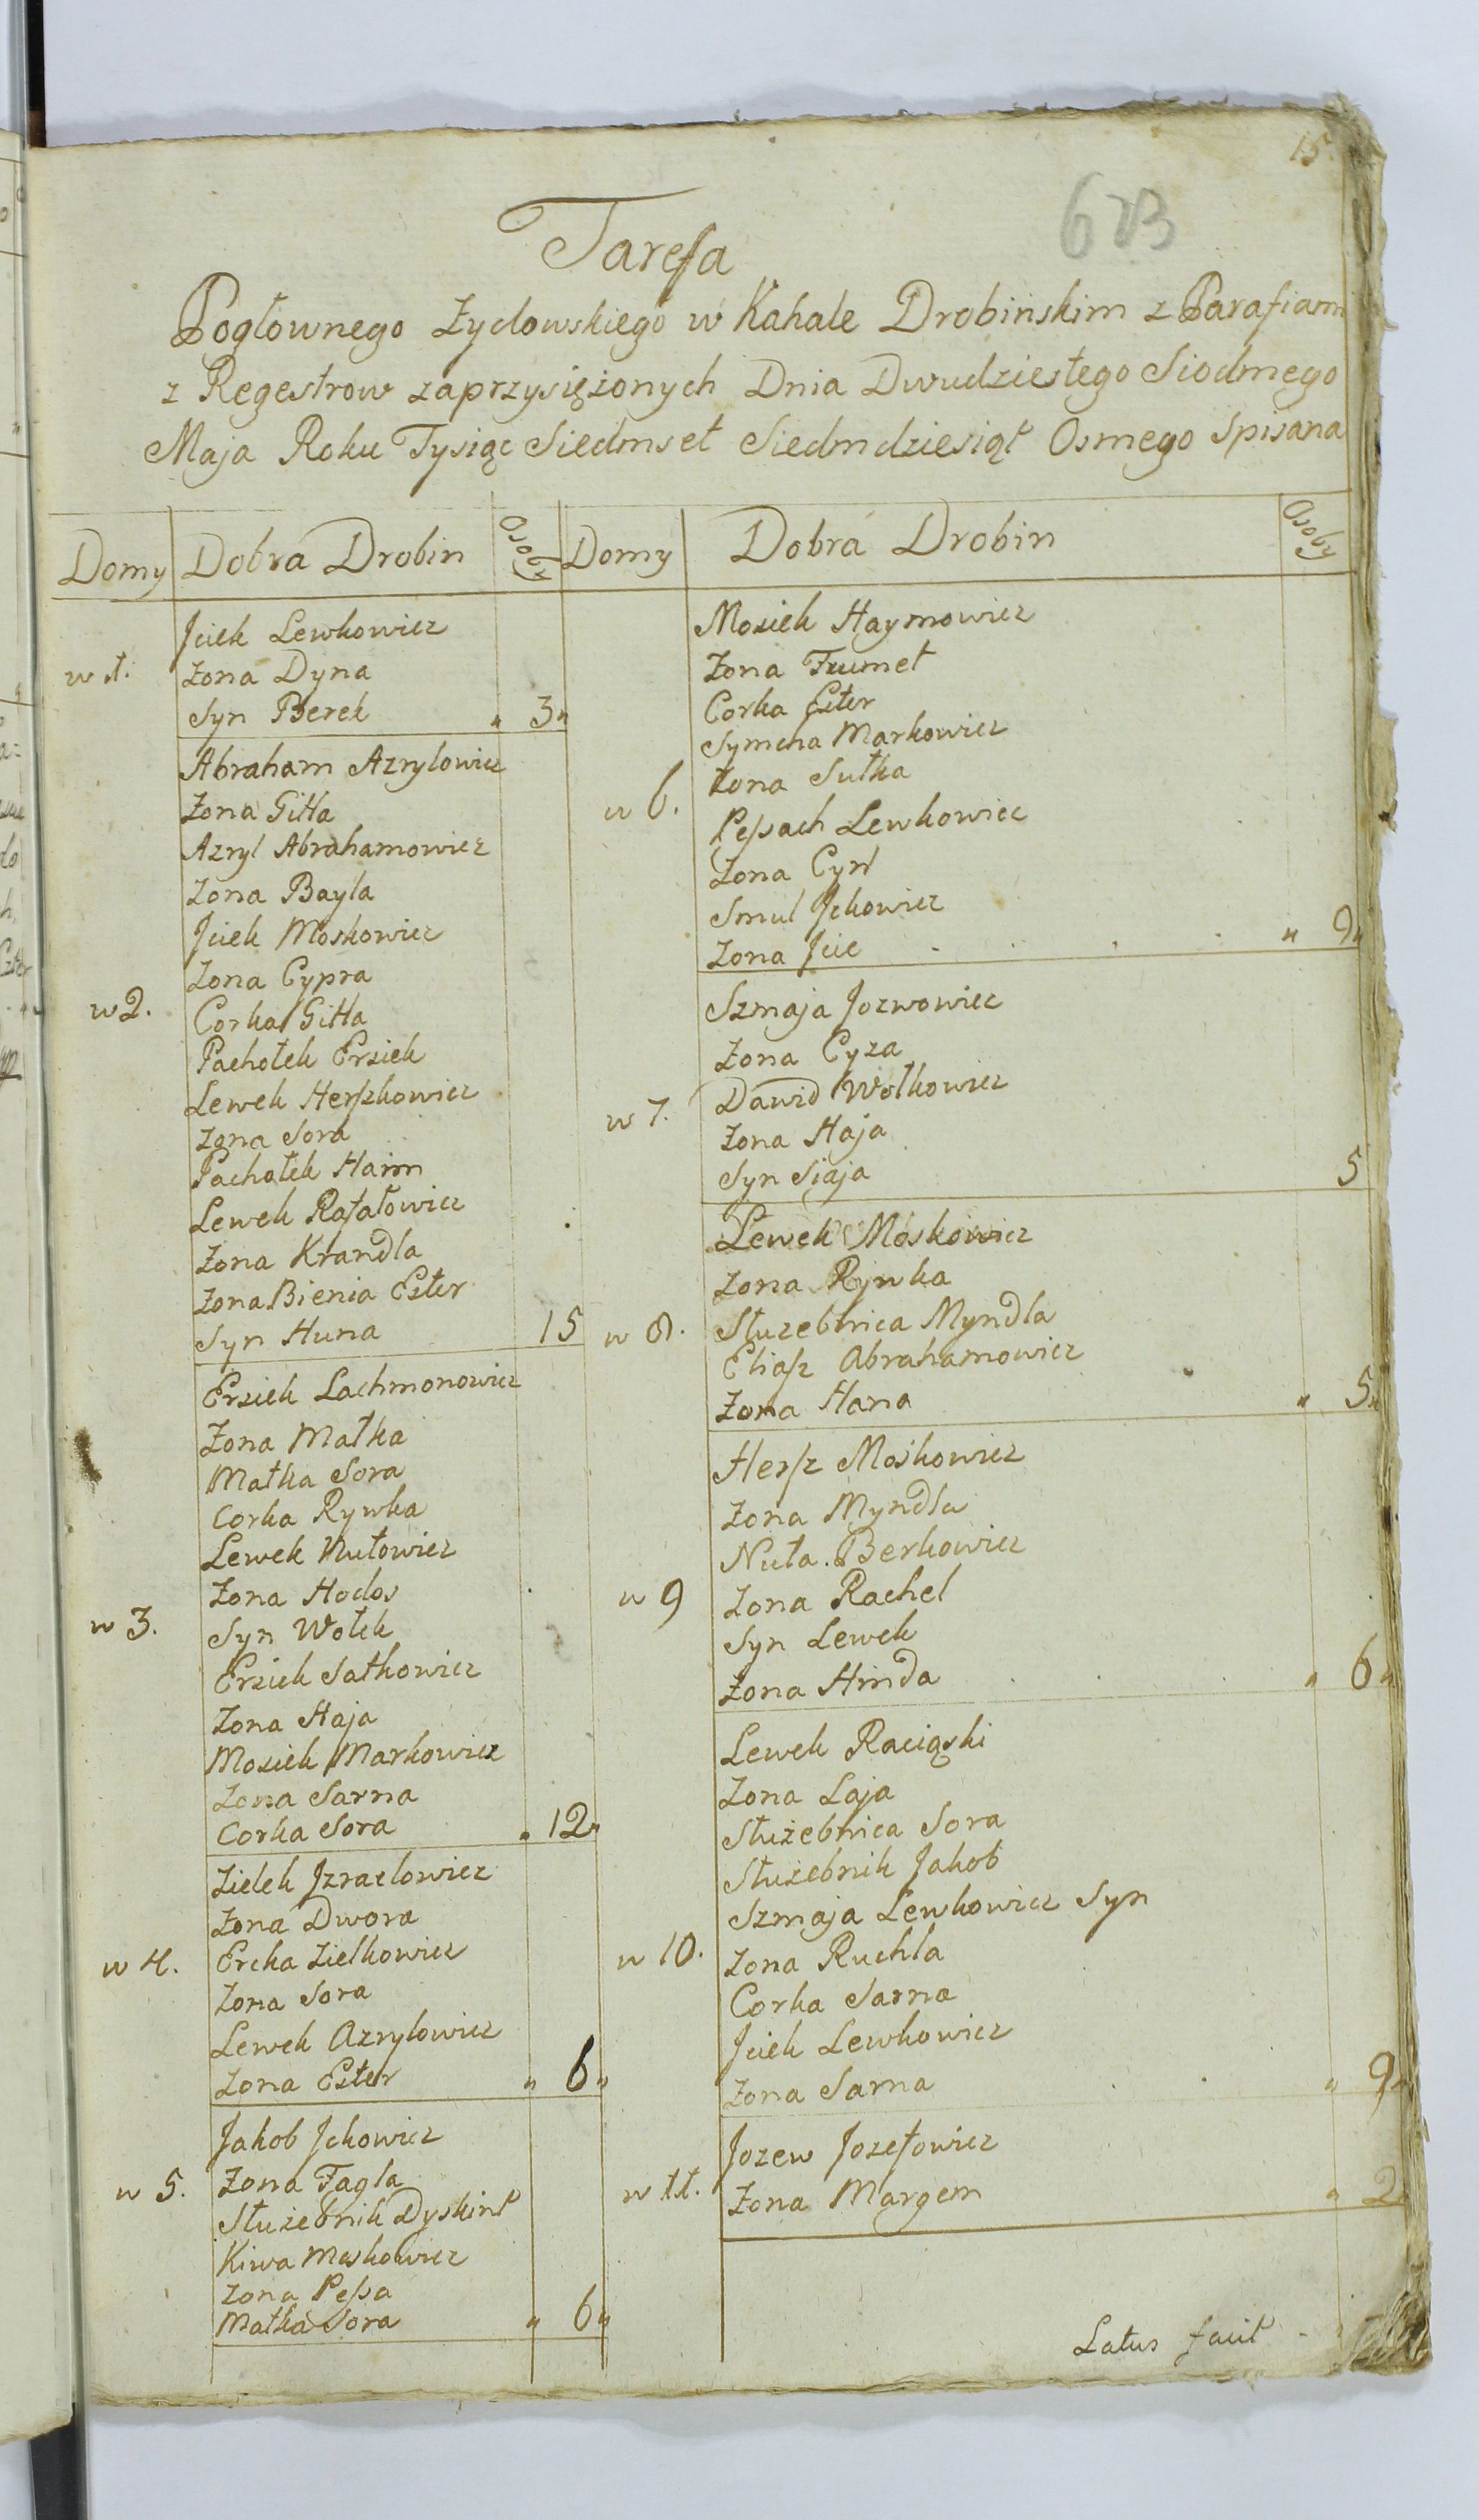 15.
623
Taressa
Pogłownego Zydowskiego w Kahale Drobinskim z Parafiam
z Regestrow zaprzysiężonych Dnia Dwudziestego Siodmego
Maja Roku Tysiąc Siedmset Siedmdziesiąt Osmego Spisana
Domy Dobra Drobin Osoby
Jciek Lewkowicz
w 1. Zona Dyna
Syn Berek " 3 "
Abraham Azrylowicz
Zona Gitla
Azryl Abrahamowicz
Zona Bayla
Jciek Moskowicz
Zona Cypra
w 2. Corka Gitla
Pachołek Ersiek
Lewek Herszkowicz
Zona Sora
Pachołek Haim
Lewek Rafałowicz
Zona Krandla
Zona Bienia Ester
Syn Huna 15
Ersiek Lachmonowicz
Zona Matka
Matka Sora
Corka Rywka
Lewek Nutowicz
Zona Hodos
w 3. Syn Wołek
Ersiek Satkowicz
Zona Haja
Mosiek Markowicz
Zona Sarna
Corka Sora " 12 "
Zielek Jzraelowicz
Zona Dwora
w 4. Ercka Zielkowicz
Zona Sora
Lewek Azrylowicz
Zona Ester " 6 "
Jakob Jckowicz
w 5. Zona Fagla
Służebnik Dyskint
Kiwa Moskowicz
Zona Pessa
Matka Sora " 6 "
Domy Dobra Drobin Osoby
Mosiek Haymowicz
Zona Frumet
Corka Ester
Symcha Markowicz
w 6. Zona Sutka
Pessach Lewkowicz
Zona Cyrl
Smul Jckowicz
Zona Jcie " 9 "
Szmaja Jozwowicz
Zona Cyza
w 7. Dawid Wolkowicz
Zona Haja
Syn Siaja 5
Lewek Moskowicz
Zona Rywka
w 8. Służebnica Myndla
Eliasz Abrahamowicz
Zona Hana " 5 "
Hersz Moskowicz
Zona Myndla
Nuta Berkowicz
w 9 Zona Rachel
Syn Lewek
Zona Hinda " 6 "
Lewek Raciąski
Zona Laja
Służebnica Sora
Służebnik Jakob
Szmaja Lewkowicz Syn
w 10. Zona Ruchla
Corka Sarna
Jciek Lewkowicz
Zona Sarna " 9 "
Jozew Jozefowicz
w 11. Zona Margem " 2 "
Latus facit